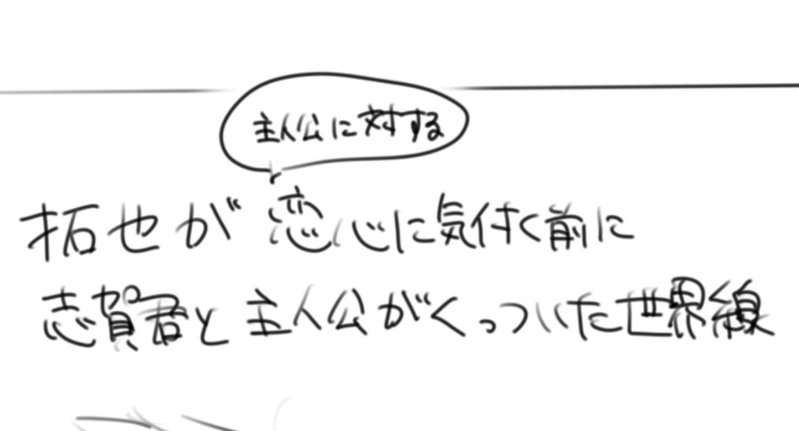 主人公に対する
拓也が恋心に気付く前に
志賀君と主人公がくっついた世界線